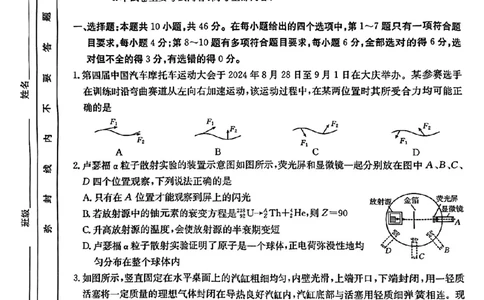 一、选择题:本题共 10 小题,共 46 分。在每小题给出的四个选项中,第 1~7 题只有一项符合题
目要求,每小题 4 分;第 8~10 题有多项符合题目要求,每小题 6 分,全部选对的得 6 分,选
对但不全的得 3 分,有选错的得 0 分。
1. 第四届中国汽车摩托车运动大会于 2024 年 8 月 28 日至 9 月 1 日在大庆举办。某参赛选手
在训练时沿弯曲赛道从左向右加速运动,该运动过程中,在某两位置时其所受合力均可能正
确的是
F₁ F₂ F₁ F₂ F₁ F₂ F₁ F₂
A B C D
2. 卢瑟福 α 粒子散射实验的装置示意图如图所示,荧光屏和显微镜一起分别放在图中 A、B、C、
D 四个位置观察,下列说法正确的是
A. 只有在 A 位置才能观察到屏上的闪光
B. 若放射源中的铀元素的衰变方程是²³⁸U→Th+⁴₂He,则 Z=90
C. 升高放射源的温度,会使放射源的半衰期变短
D. 卢瑟福 α 粒子散射实验证明了原子是一个球体,正电荷弥漫性地均
匀分布在整个球体内
放射源 金箔 荧光屏
显微镜
A
B
C
D
3. 如图所示,竖直固定在水平桌面上的汽缸粗细均匀,内壁光滑,上端开口,下端封闭,用一轻质
活塞将一定质量的理想气体封闭在导热良好汽缸内,汽缸底部与活塞用轻质细弹簧相连。现
题
答
要
不
内
线
封
姓名
班级